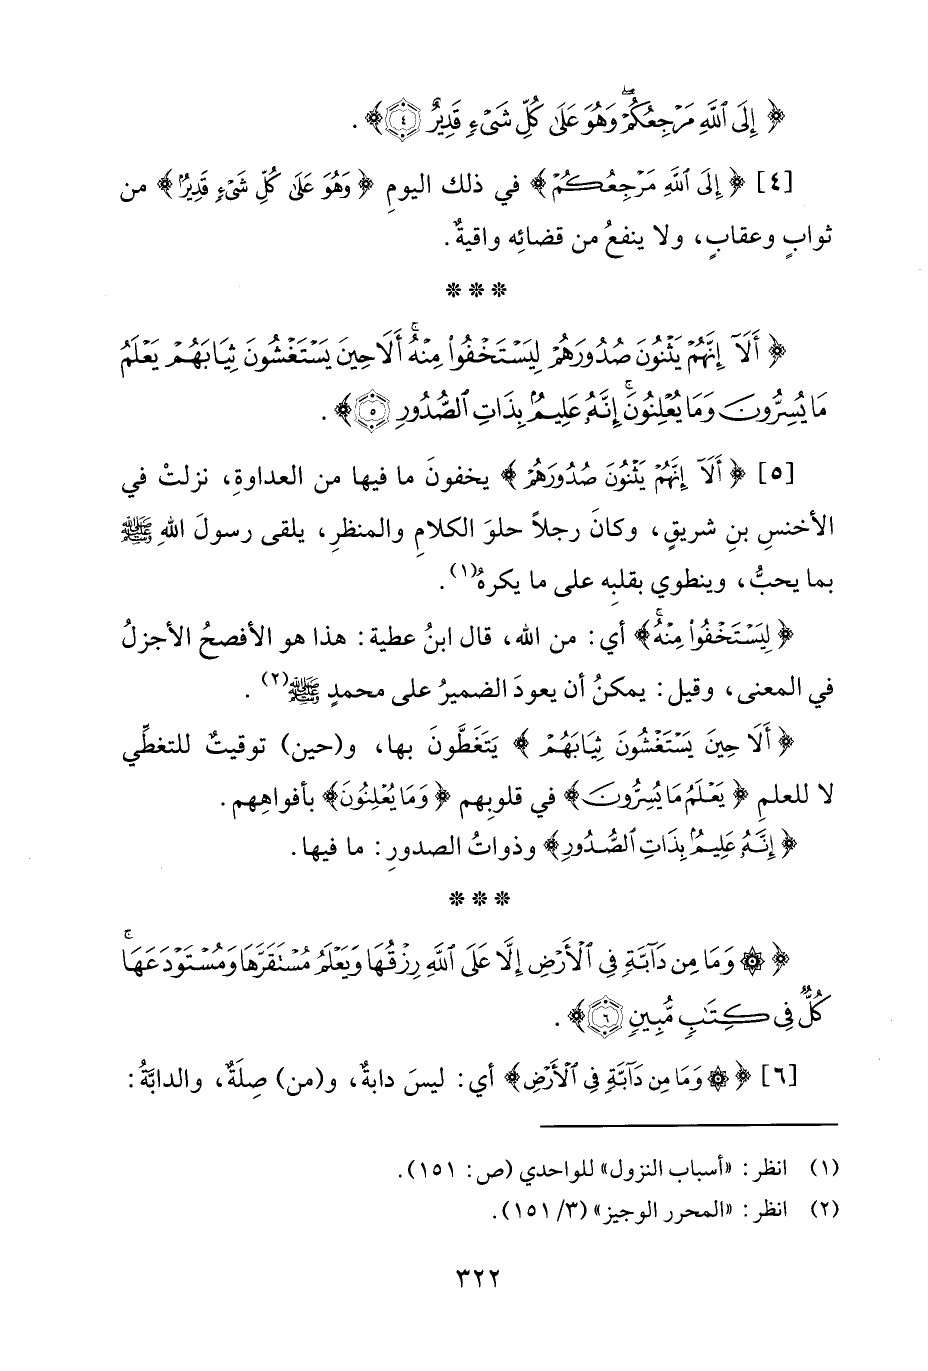 ﴿ إِلَى ٱللَّهِ مَرْجِعُكُمْ ۖ وَهُوَ عَلَىٰ كُلِّ شَىْءٍ قَدِيرٌ ٤ ﴾ .
[٤] ﴿ إِلَى ٱللَّهِ مَرْجِعُكُمْ ﴾ في ذلك اليومِ ﴿ وَهُوَ عَلَىٰ كُلِّ شَىْءٍ قَدِيرٌ ﴾ من
ثوابٍ وعقابٍ، ولا ينفعُ من قضائِه واقيةٌ.
* * *
﴿ أَلَآ إِنَّهُمْ يَثْنُونَ صُدُورَهُمْ لِيَسْتَخْفُوا۟ مِنْهُ ۚ أَلَا حِينَ يَسْتَغْشُونَ ثِيَابَهُمْ يَعْلَمُ
مَا يُسِرُّونَ وَمَا يُعْلِنُونَ ۚ إِنَّهُۥ عَلِيمٌۢ بِذَاتِ ٱلصُّدُورِ ٥ ﴾ .
[٥] ﴿ أَلَآ إِنَّهُمْ يَثْنُونَ صُدُورَهُمْ ﴾ يخفونَ ما فيها من العداوةِ، نزلتْ في
الأخنسِ بنِ شريقٍ، وكانَ رجلاً حلوَ الكلامِ والمنظرِ، يلقى رسولَ اللهِ ﷺ
بما يحبُّ، وينطوي بقلبِه على ما يكرهُ(١).
﴿ لِيَسْتَخْفُوا۟ مِنْهُ ۚ ﴾ أي: من الله، قال ابنُ عطية: هذا هو الأفصحُ الأجزلُ
في المعنى، وقيل: يمكنُ أن يعودَ الضميرُ على محمدٍ ﷺ(٢) .
﴿ أَلَا حِينَ يَسْتَغْشُونَ ثِيَابَهُمْ ﴾ يَتَغَطَّونَ بها، و(حين) توقيتٌ للتغطِّي
لا للعلمِ ﴿ يَعْلَمُ مَا يُسِرُّونَ ﴾ في قلوبِهم ﴿ وَمَا يُعْلِنُونَ ﴾ بأفواهِهم.
﴿ إِنَّهُۥ عَلِيمٌۢ بِذَاتِ ٱلصُّدُورِ ﴾ وذواتُ الصدورِ: ما فيها.
* * *
﴿ ۞ وَمَا مِن دَآبَّةٍ فِى ٱلْأَرْضِ إِلَّا عَلَى ٱللَّهِ رِزْقُهَا وَيَعْلَمُ مُسْتَقَرَّهَا وَمُسْتَوْدَعَهَا ۚ
كُلٌّ فِى كِتَـٰبٍ مُّبِينٍ ٦ ﴾ .
[٦] ﴿ ۞ وَمَا مِن دَآبَّةٍ فِى ٱلْأَرْضِ ﴾ أي: ليسَ دابةٌ، و(من) صِلَةٌ، والدابَّةُ:
(١) انظر: «أسباب النزول» للواحدي (ص: ١٥١).
(٢) انظر: «المحرر الوجيز» (٣/ ١٥١).
٣٢٢